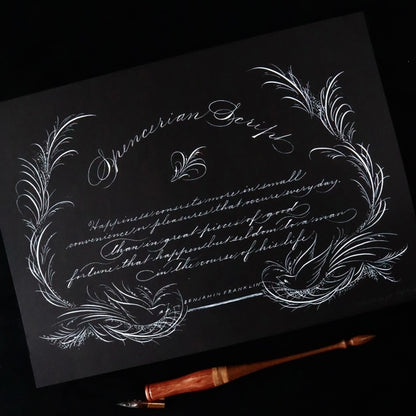 Spencerian Script
Happiness consists more in small
conveniences or pleasures that occur every day
than in great pieces of good
fortune that happen but seldom to a man
in the course of his life
BENJAMIN FRANKLIN